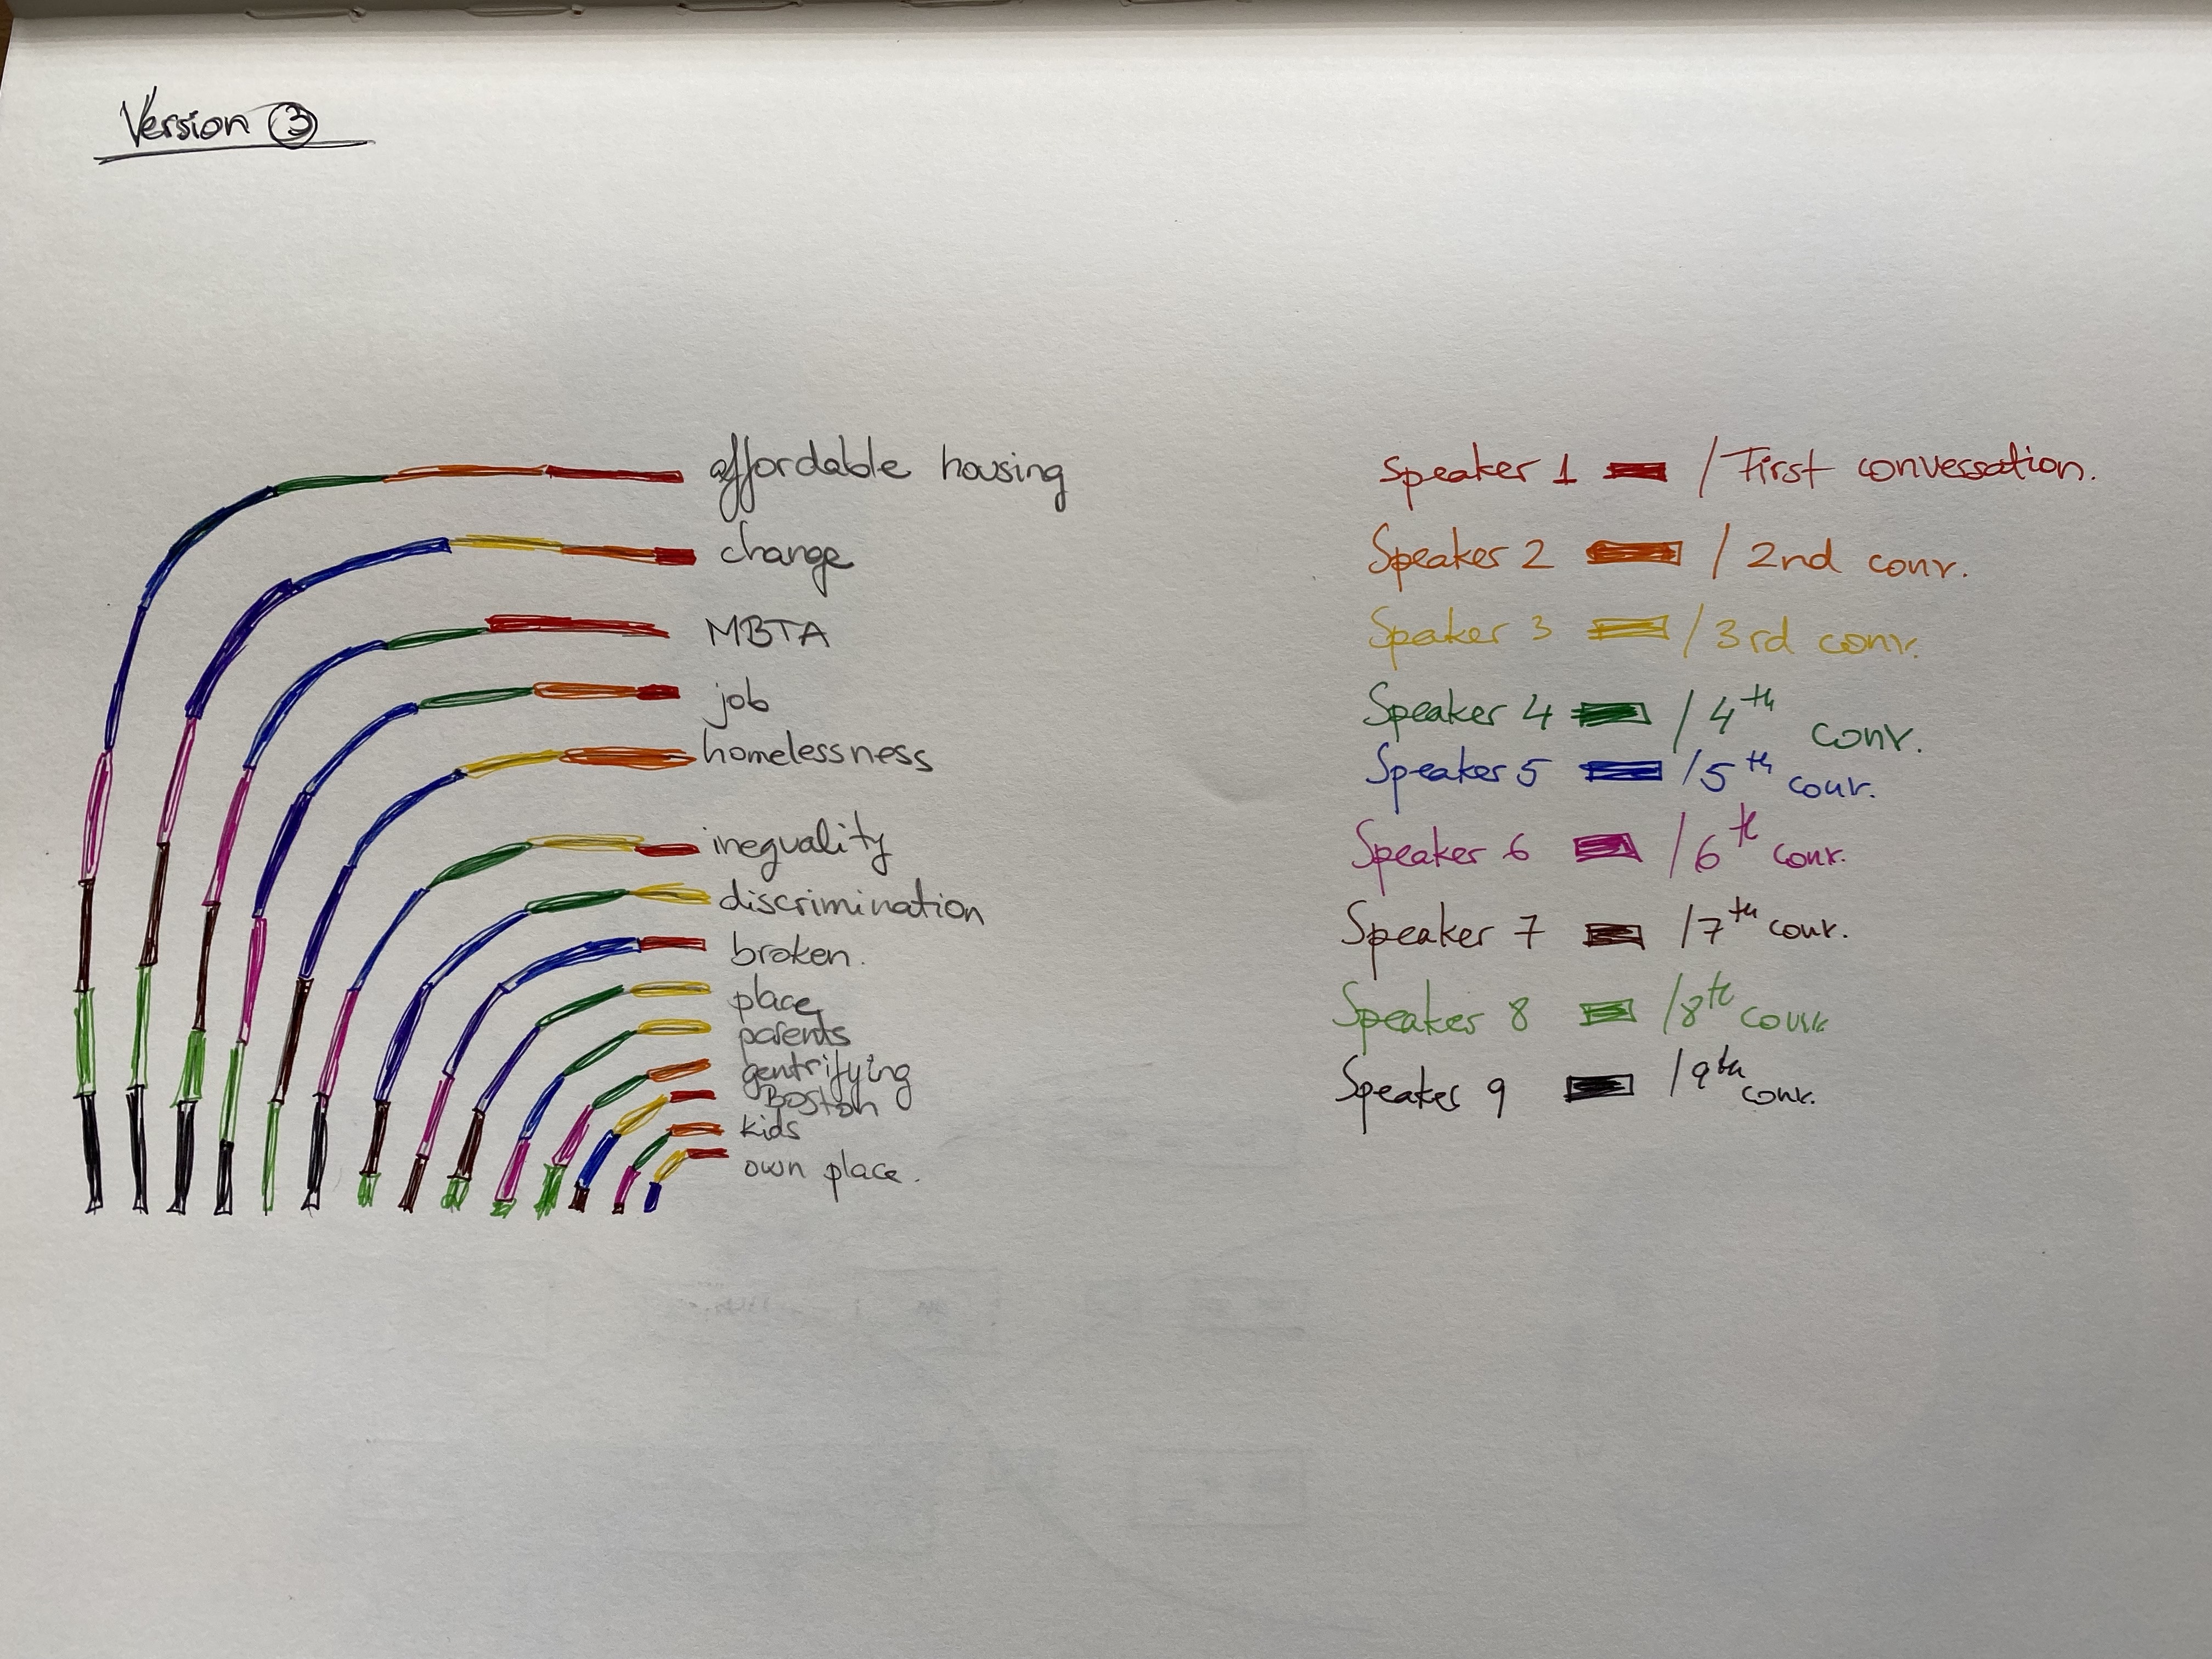 Version ③
affordable housing
change
MBTA
job
homelessness
inequality
discrimination
broken.
place
parents
gentrifying
Boston
kids
own place.
Speaker 1 / First conversation.
Speaker 2 / 2nd conv.
Speaker 3 / 3rd conv.
Speaker 4 / 4th conv.
Speaker 5 / 5th conv.
Speaker 6 / 6th conv.
Speaker 7 / 7th conv.
Speaker 8 / 8th conv.
Speaker 9 / 9th conv.